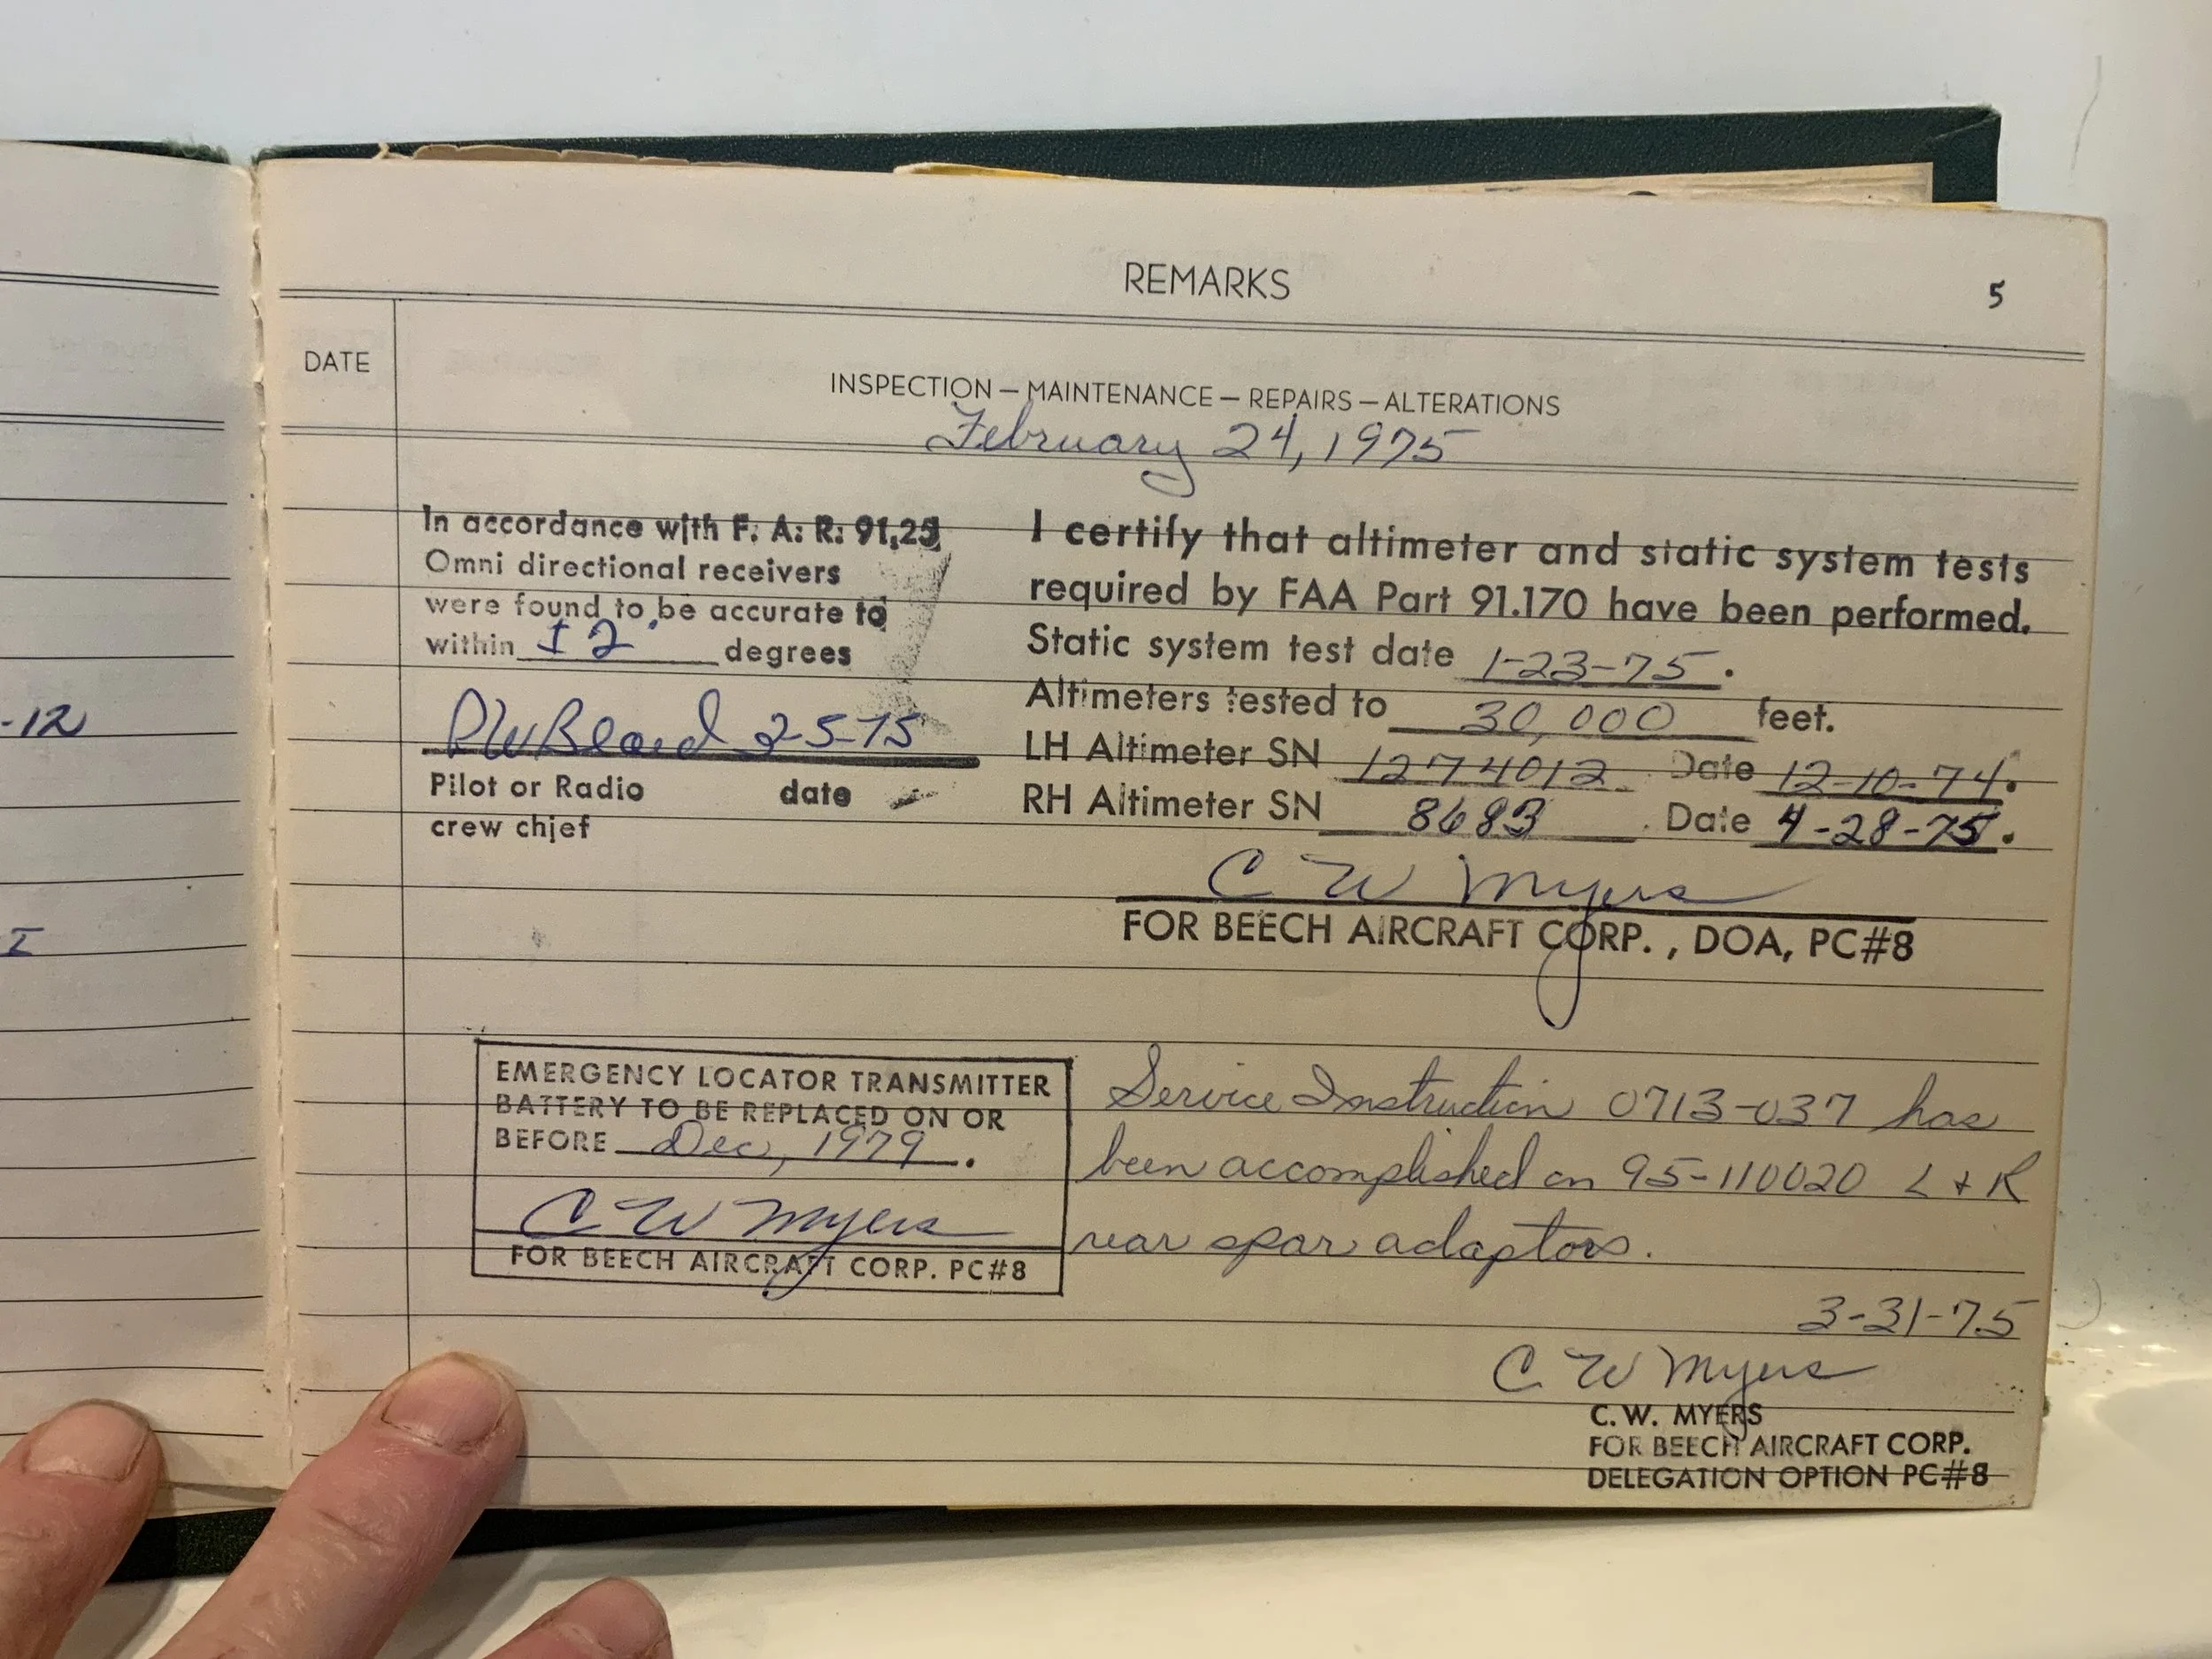 REMARKS
5
DATE
INSPECTION — MAINTENANCE — REPAIRS — ALTERATIONS
February 24, 1975
In accordance with F. A. R. 91.25
Omni directional receivers
were found to be accurate to
within ± 2 degrees
2-5-75
Pilot or Radio date
crew chief
I certify that altimeter and static system tests
required by FAA Part 91.170 have been performed.
Static system test date 1-23-75.
Altimeters tested to 30,000 feet.
LH Altimeter SN 1274012 Date 12-10-74.
RH Altimeter SN 8683 Date 4-28-75.
C W Myers
FOR BEECH AIRCRAFT CORP., DOA, PC#8
EMERGENCY LOCATOR TRANSMITTER
BATTERY TO BE REPLACED ON OR
BEFORE Dec, 1979.
C W Myers
FOR BEECH AIRCRAFT CORP. PC#8
Service Instruction 0713-037 has
been accomplished on 95-110020 L + R
rear spar adaptors.
3-31-75
C W Myers
C. W. MYERS
FOR BEECH AIRCRAFT CORP.
DELEGATION OPTION PC#8
-12
I